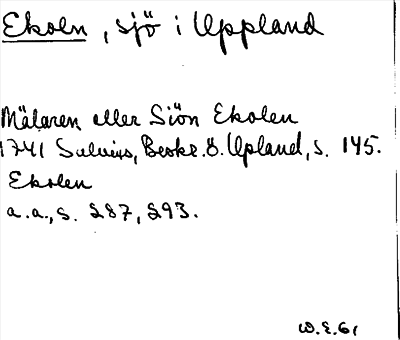 Ekoln, sjö i Uppland
Mälaren eller Siön Ekolen
1741 Salvius, Beskr. ö. Upland, s. 145.
Ekolen
a.a., s. 287, 293.
W.E. 61